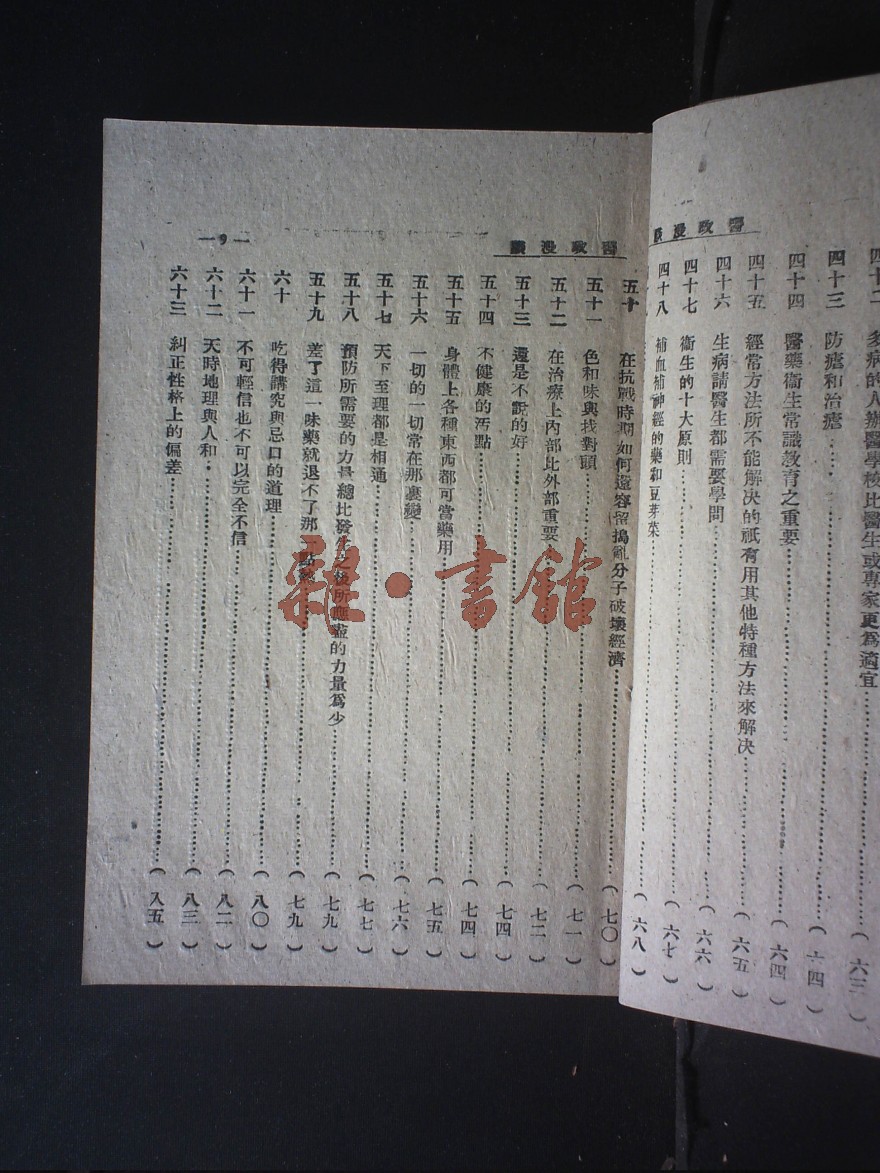 醫政漫談
四十二 多病的人辦醫學校比醫生或專家更爲適宜……（六三）
四十三 防瘧和治瘧……（六四）
四十四 醫藥衞生常識敎育之重要……（六四）
四十五 經常方法所不能解决的祇有用其他特種方法來解决……（六五）
四十六 生病請醫生都需要學問……（六六）
四十七 衞生的十大原則……（六七）
四十八 補血補神經的藥和豆芽菜……（六八）
醫政漫談
五十 在抗戰時期如何還容留搗亂分子破壞經濟……（七〇）
五十一 色和味與找對頭……（七一）
五十二 在治療上內部比外部重要……（七二）
五十三 還是不說的好……（七四）
五十四 不健康的汚點……（七四）
五十五 身體上各種東西都可當藥用……（七五）
五十六 一切的一切常在那裏變……（七六）
五十七 天下至理都是相通……（七七）
五十八 預防所需要的力量總比發生之後所應盡的力量爲少……（七九）
五十九 差了這一味藥就退不了那一點……（七九）
六十 吃得講究與忌口的道理……（八〇）
六十一 不可輕信也不可以完全不信……（八二）
六十二 天時地理與人和……（八三）
六十三 糾正性格上的偏差……（八五）
雜·書館